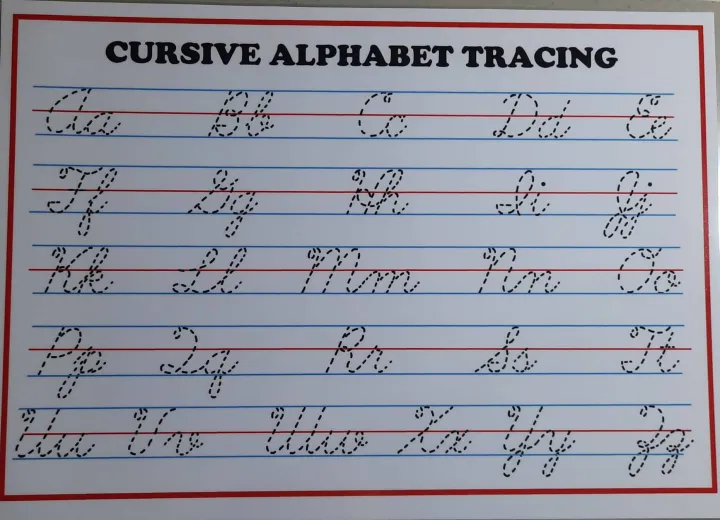 CURSIVE ALPHABET TRACING
Aa Bb Cc Dd Ee
Ff Gg Hh Ii Jj
Kk Ll Mm Nn Oo
Pp Qq Rr Ss Tt
Uu Vv Ww Xx Yy Zz